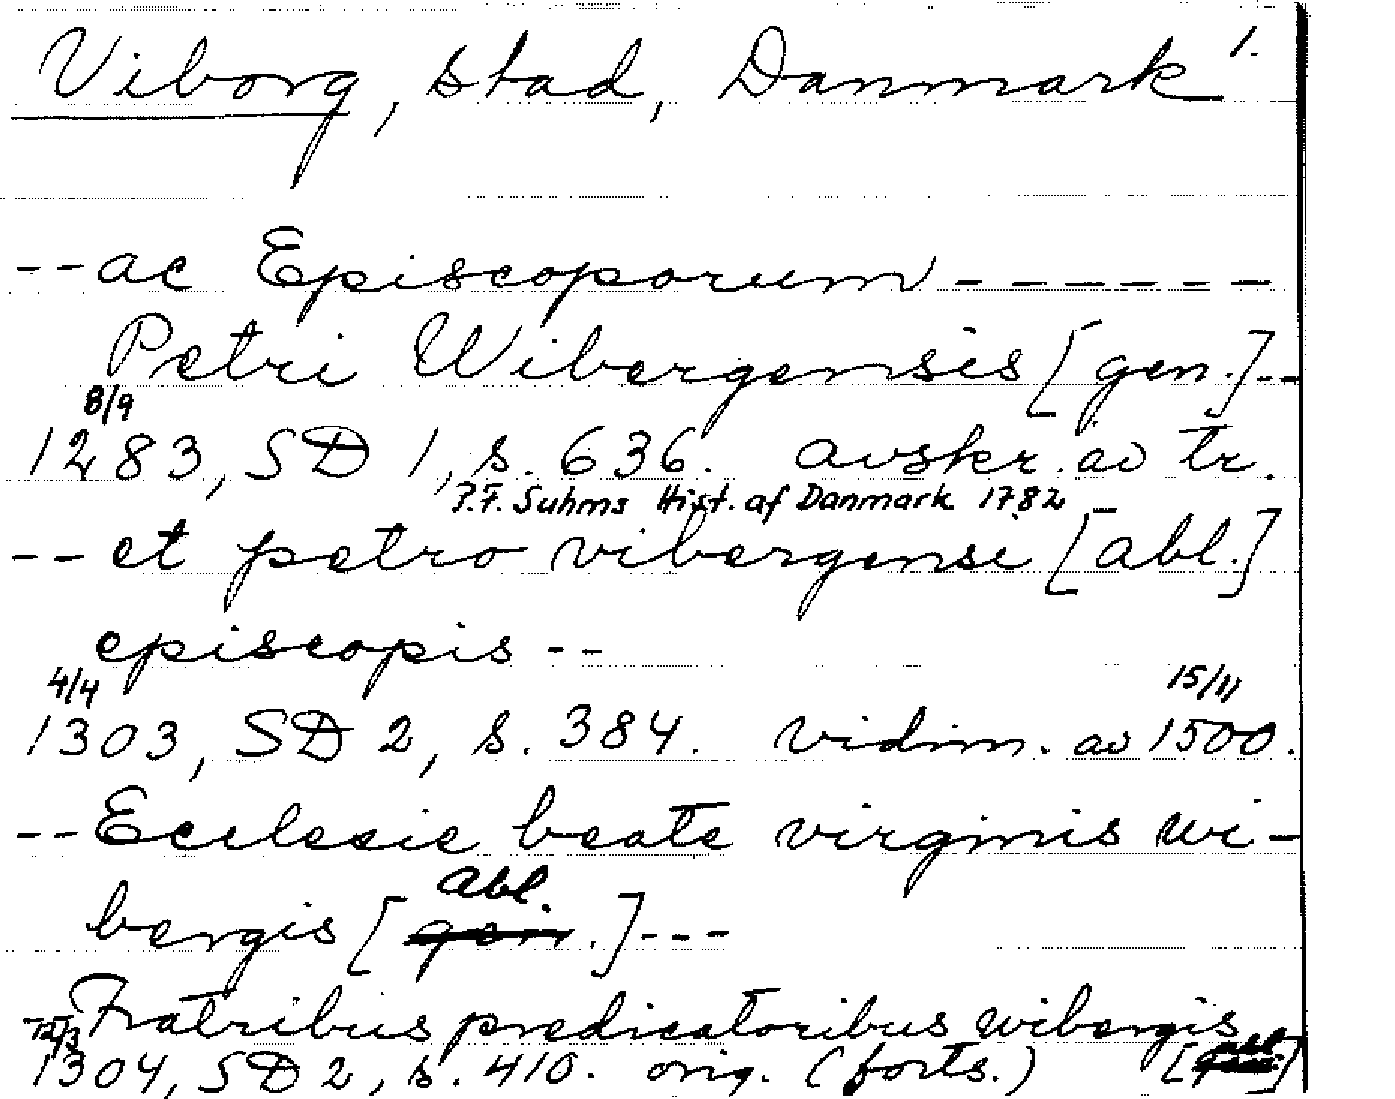 Viborg, stad, Danmark 1.
--ac Episcoporum------
Petri Wibergensis [gen.]--
8/9
1283, SD 1, s. 636. avskr. av tr.
P.F. Suhms Hist. af Danmark 1782
--et petro vibergensi [abl.]
episcopis --
4/4 15/11
1303, SD 2, s. 384. vidim. av 1500.
--Ecclesie beate virginis wi-
abl.
bergis [gen.]---
--Fratribus predicatoribus wibergis
1304, SD 2, s. 410. orig. (forts.) [abl.]